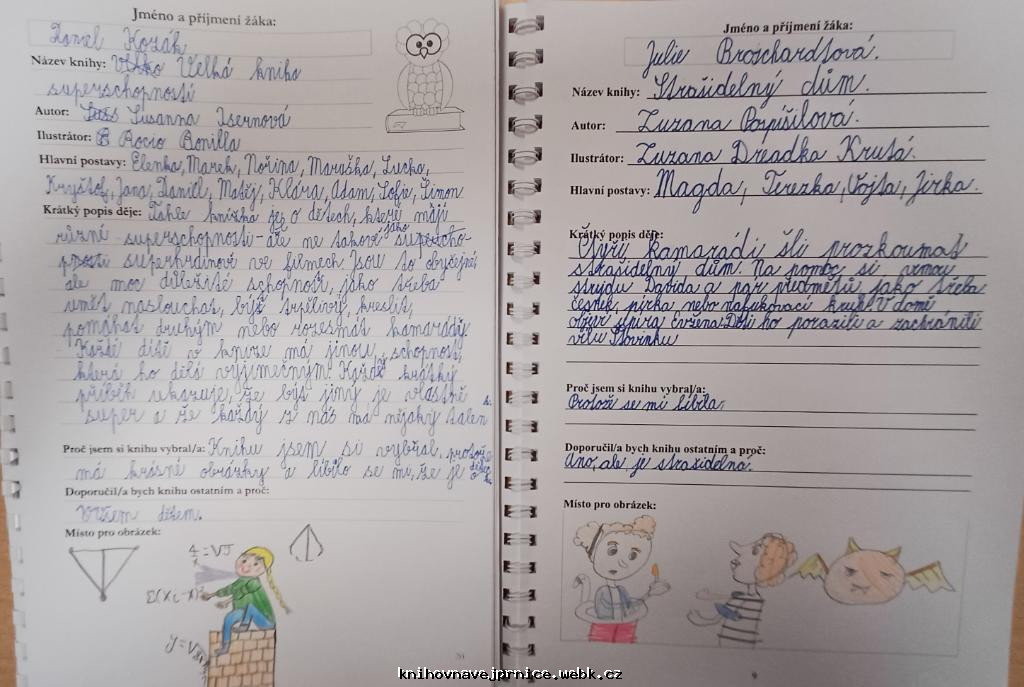 Jméno a příjmení žáka:
Daniel Kozák
Název knihy: Velká kniha
superschopností
Autor: Susanna Isernová
Ilustrátor: Rocio Bonilla
Hlavní postavy: Elenka, Marek, Nořina, Maruška, Lucka,
Kryštof, Jana, Daniel, Matěj, Klára, Adam, Sofie, Šimon
Krátký popis děje: Tahle knížka je o dětech, které mají
různé superschopnosti - ale ne takové jako
superhrdinové ve filmech. Jsou to obyčejné,
ale moc důležité schopnosti, jako třeba
umět naslouchat, být trpělivý, kreslit,
pomáhat druhým nebo rozesmát kamarády.
Každé dítě v knize má jinou schopnost,
která ho dělá výjimečným. Každý krátký
příběh ukazuje, že být jiný je vlastně
super a že každý z nás má nějaký talen
Proč jsem si knihu vybral/a: Knihu jsem si vybral, protože
má krásné obrázky a líbilo se mi, že je o
Doporučil/a bych knihu ostatním a proč:
Všem dětem.
Místo pro obrázek:
Jméno a příjmení žáka:
Julie Broschardtová.
Název knihy: Strašidelný dům.
Autor: Zuzana Pospíšilová.
Ilustrátor: Zuzana Dreadka Krutá.
Hlavní postavy: Magda, Terezka, Vojta, Jirka.
Krátký popis děje:
Čtyři kamarádi šli prozkoumat
strašidelný dům. Na pomoc si vzmou
strýdu Davida a par předmětů, jako třeba
česnek, pírka nebo nafukovací kruh. V domě
ožije Evžena. Děti ho porazili a zachránili
vílu
Proč jsem si knihu vybral/a:
Protože se mi líbila.
Doporučil/a bych knihu ostatním a proč:
Ano, ale je strašidelná.
Místo pro obrázek:
9
knihovnavejprnice.webk.cz